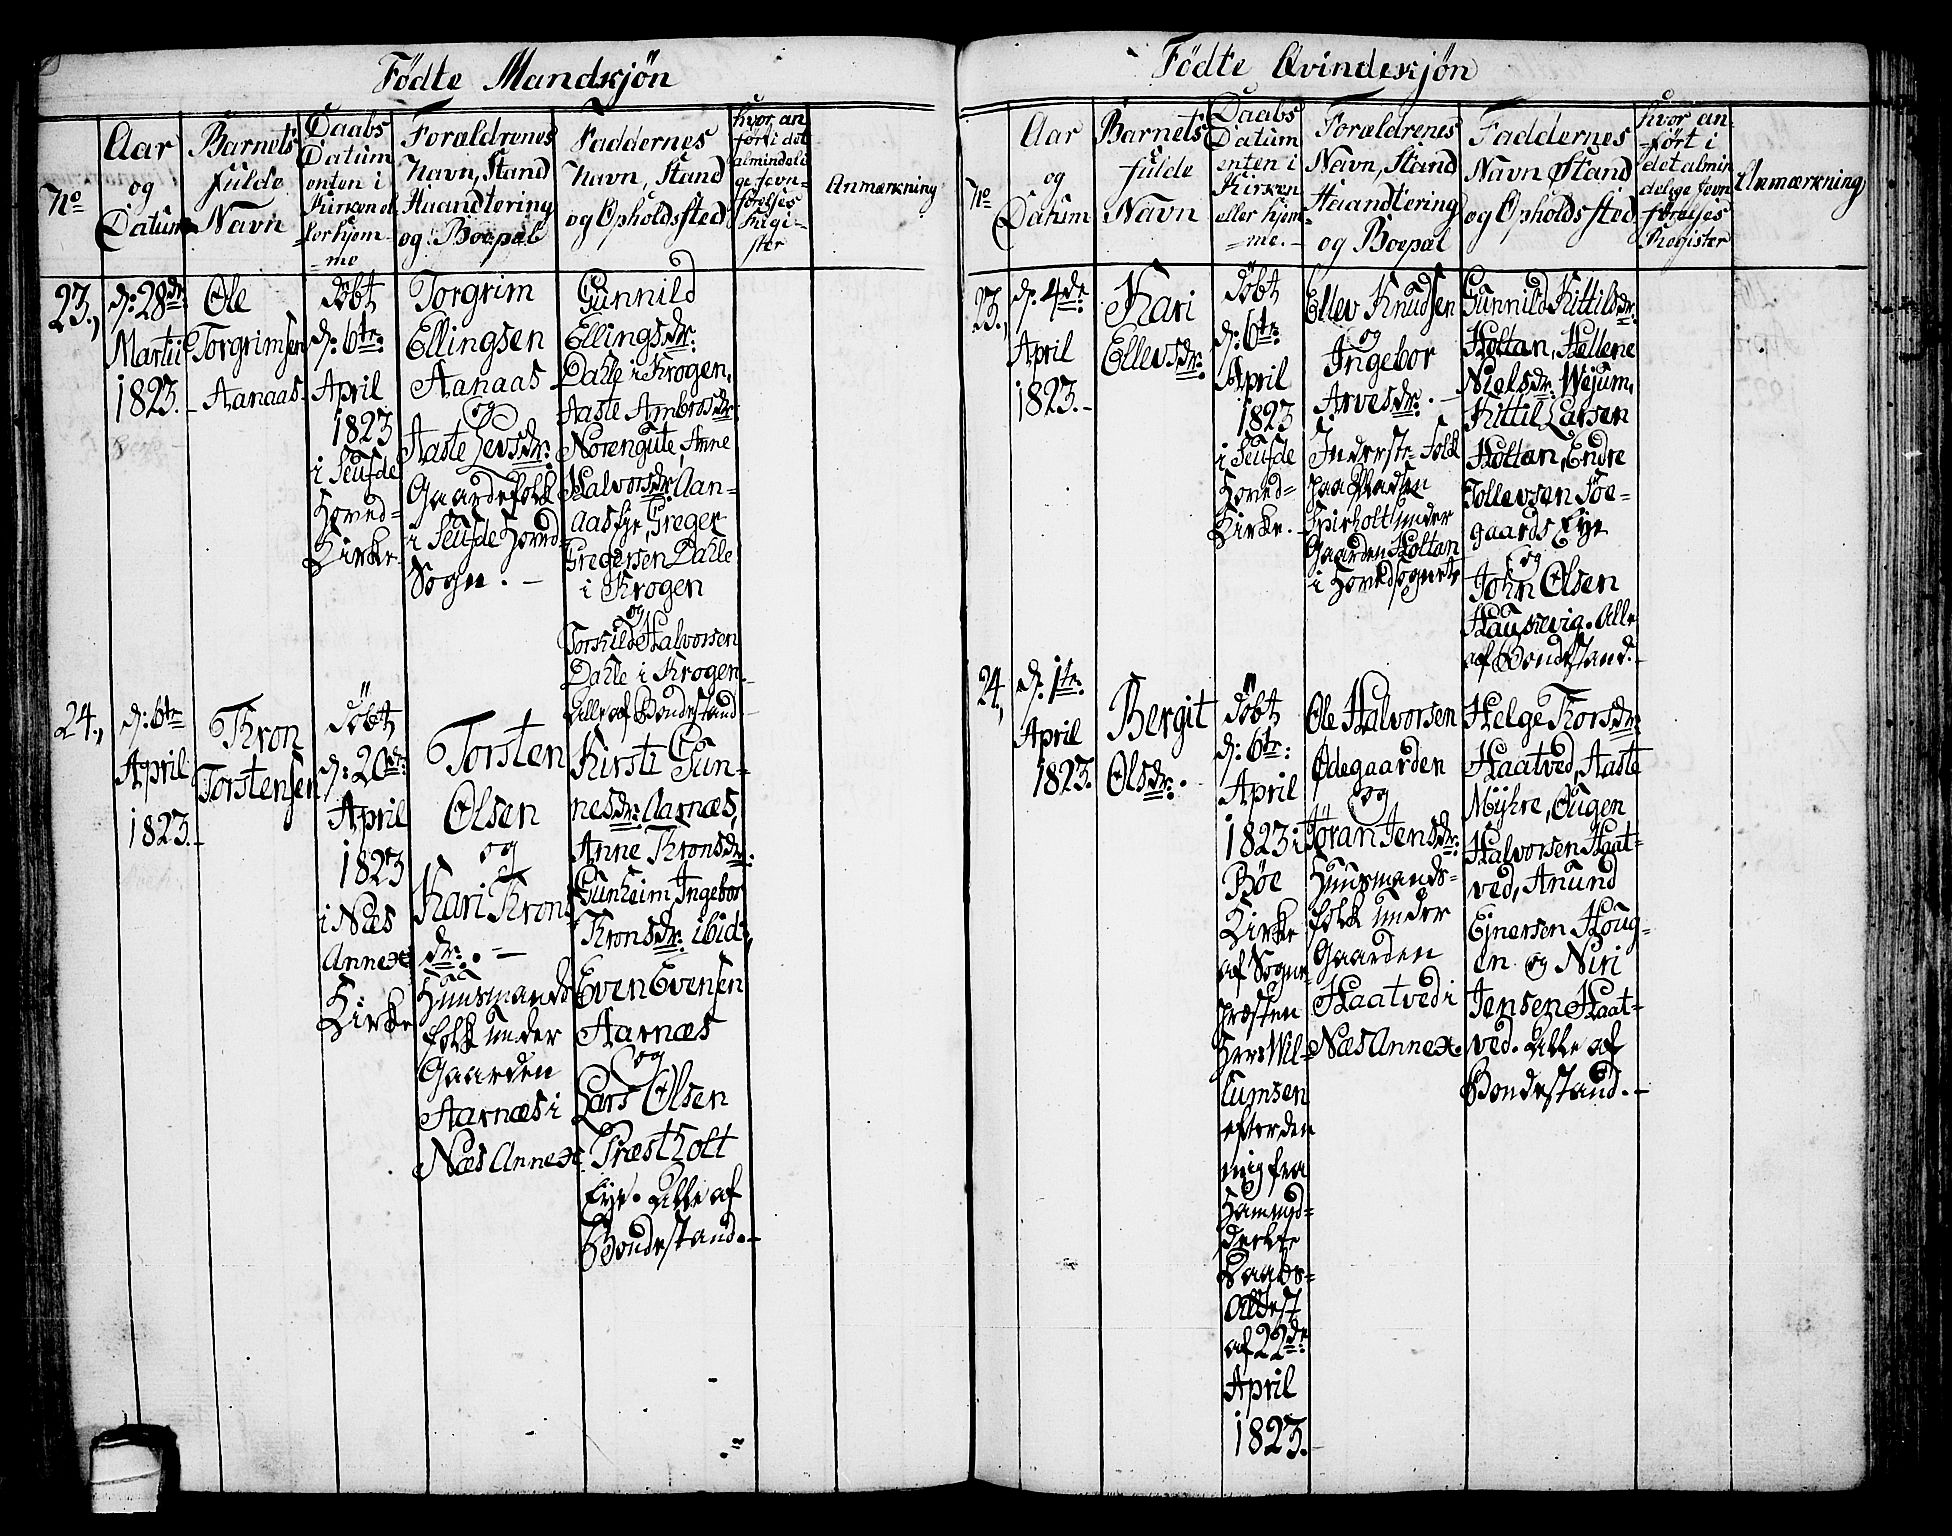 Födte Mandkjön
No
Aar
og
Datum
Barnets
fulde
Navn
Daabs
Datum
enten i
Kirken el
ler hjem-
-me
Forældrenes
Navn, Stand
Haandtering
og Boepæl
Faddernes
Navn, Stand
og Opholdssted
Hvor an
fört i det
almindeli
ge Jevn-
förelses
Regi-
ster
Anmærkning
23,
d: 28de
Martii
1823.-
Ole
Torgrimsen
Aanaas-
döbt
d: 6te:
April
1823
i Seufde
Hoved-
Kirke.
Torgrim
Ellingsen
Aanaas
og
Aaste Levsdr:
Gaardefolk
i Seufde Hoved-
Sogn. -
Gunnild
Ellingsdr:
Dahle i Krogen,
Aaste Ambrosdr:
Norengute, Anne
Halvorsdr: Aan-
aas Eye, Greger
Gregersen Dahle
i Krogen
og
Torkild Halvorsen
Dahle i Krogen.
Alle af Bondestand
24.,
d: 6te
April
1823.-
Tron
Torstensen
döbt
d: 20de:
April
1823
i Næs
Annex
Kirke
Torsten
Olsen
og
Kari Trons
dr:. -
Huusmands
folk under
Gaarden
Aarnæs i
Næs Annex
Kirsti Gun-
nesdr: Aarnæs,
Anne Tronsdr:
Gunheim, Ingebor
Tronsdr: ibid:,
Even Evensen
Aarnæs
og
Lars Olsen
Præstholt
Eye. Alle af
Bondestand.-
Födte Qvindekjön
No
Aar
og
Datum
Barnets
fulde
Navn
Daabs
Datum
enten i
Kirken
eller hjem
-me.-
Forældrenes
Navn, Stand
Haandtering
og Boepæl
Faddernes
Navn Stand
og Opholdssted
Hvor an
-fört i
det almin
delige Jevn
förelses
Register
Anmærkning
23,
d: 4de
April
1823.-
Kari
Ellevsdr:
döbt
d: 6te:
April
1823
i Seufde
Hoved-
Kirke.
Ellev Knudsen
og
Ingebor
Arvesdr:. -
Inderste-Folk
paa Pladsen
under
Gaarden Holtan
i Hovedsognet
Gunnild Kittilsdr:
Holtan, Hellene
Nielsdr: Wejum,
Kittil Larsen
Holtan, Endre
Tollevsen Söe-
gaards Eye
og
John Olsen
Haukevig. Alle
af Bondestand.-
24,
d: 1te:
April
1823.
Bergit
Olsdr:.
döbt
d: 6te:
April
1823 i
Böe
Kirke
af Sogne
præsten
Herr Wil-
lumsen
efter den
mig fra
Ham med-
deelte
Daabs-
Attest
af 22de:
April
1823.-
Ole Halvorsen
Ödegaarden
og
Jöran Jensdr:
Huusmands-
folk under
Gaarden
Haatved i
Næs Annex.
Helge Torsdr:
Haatved, Aaste
Myhre, Ougen
Halvorsen Haat-
ved, Anund
Ejnersen Houg-
en og Niri
Jensen Haat-
ved. Alle af
Bondestand.-